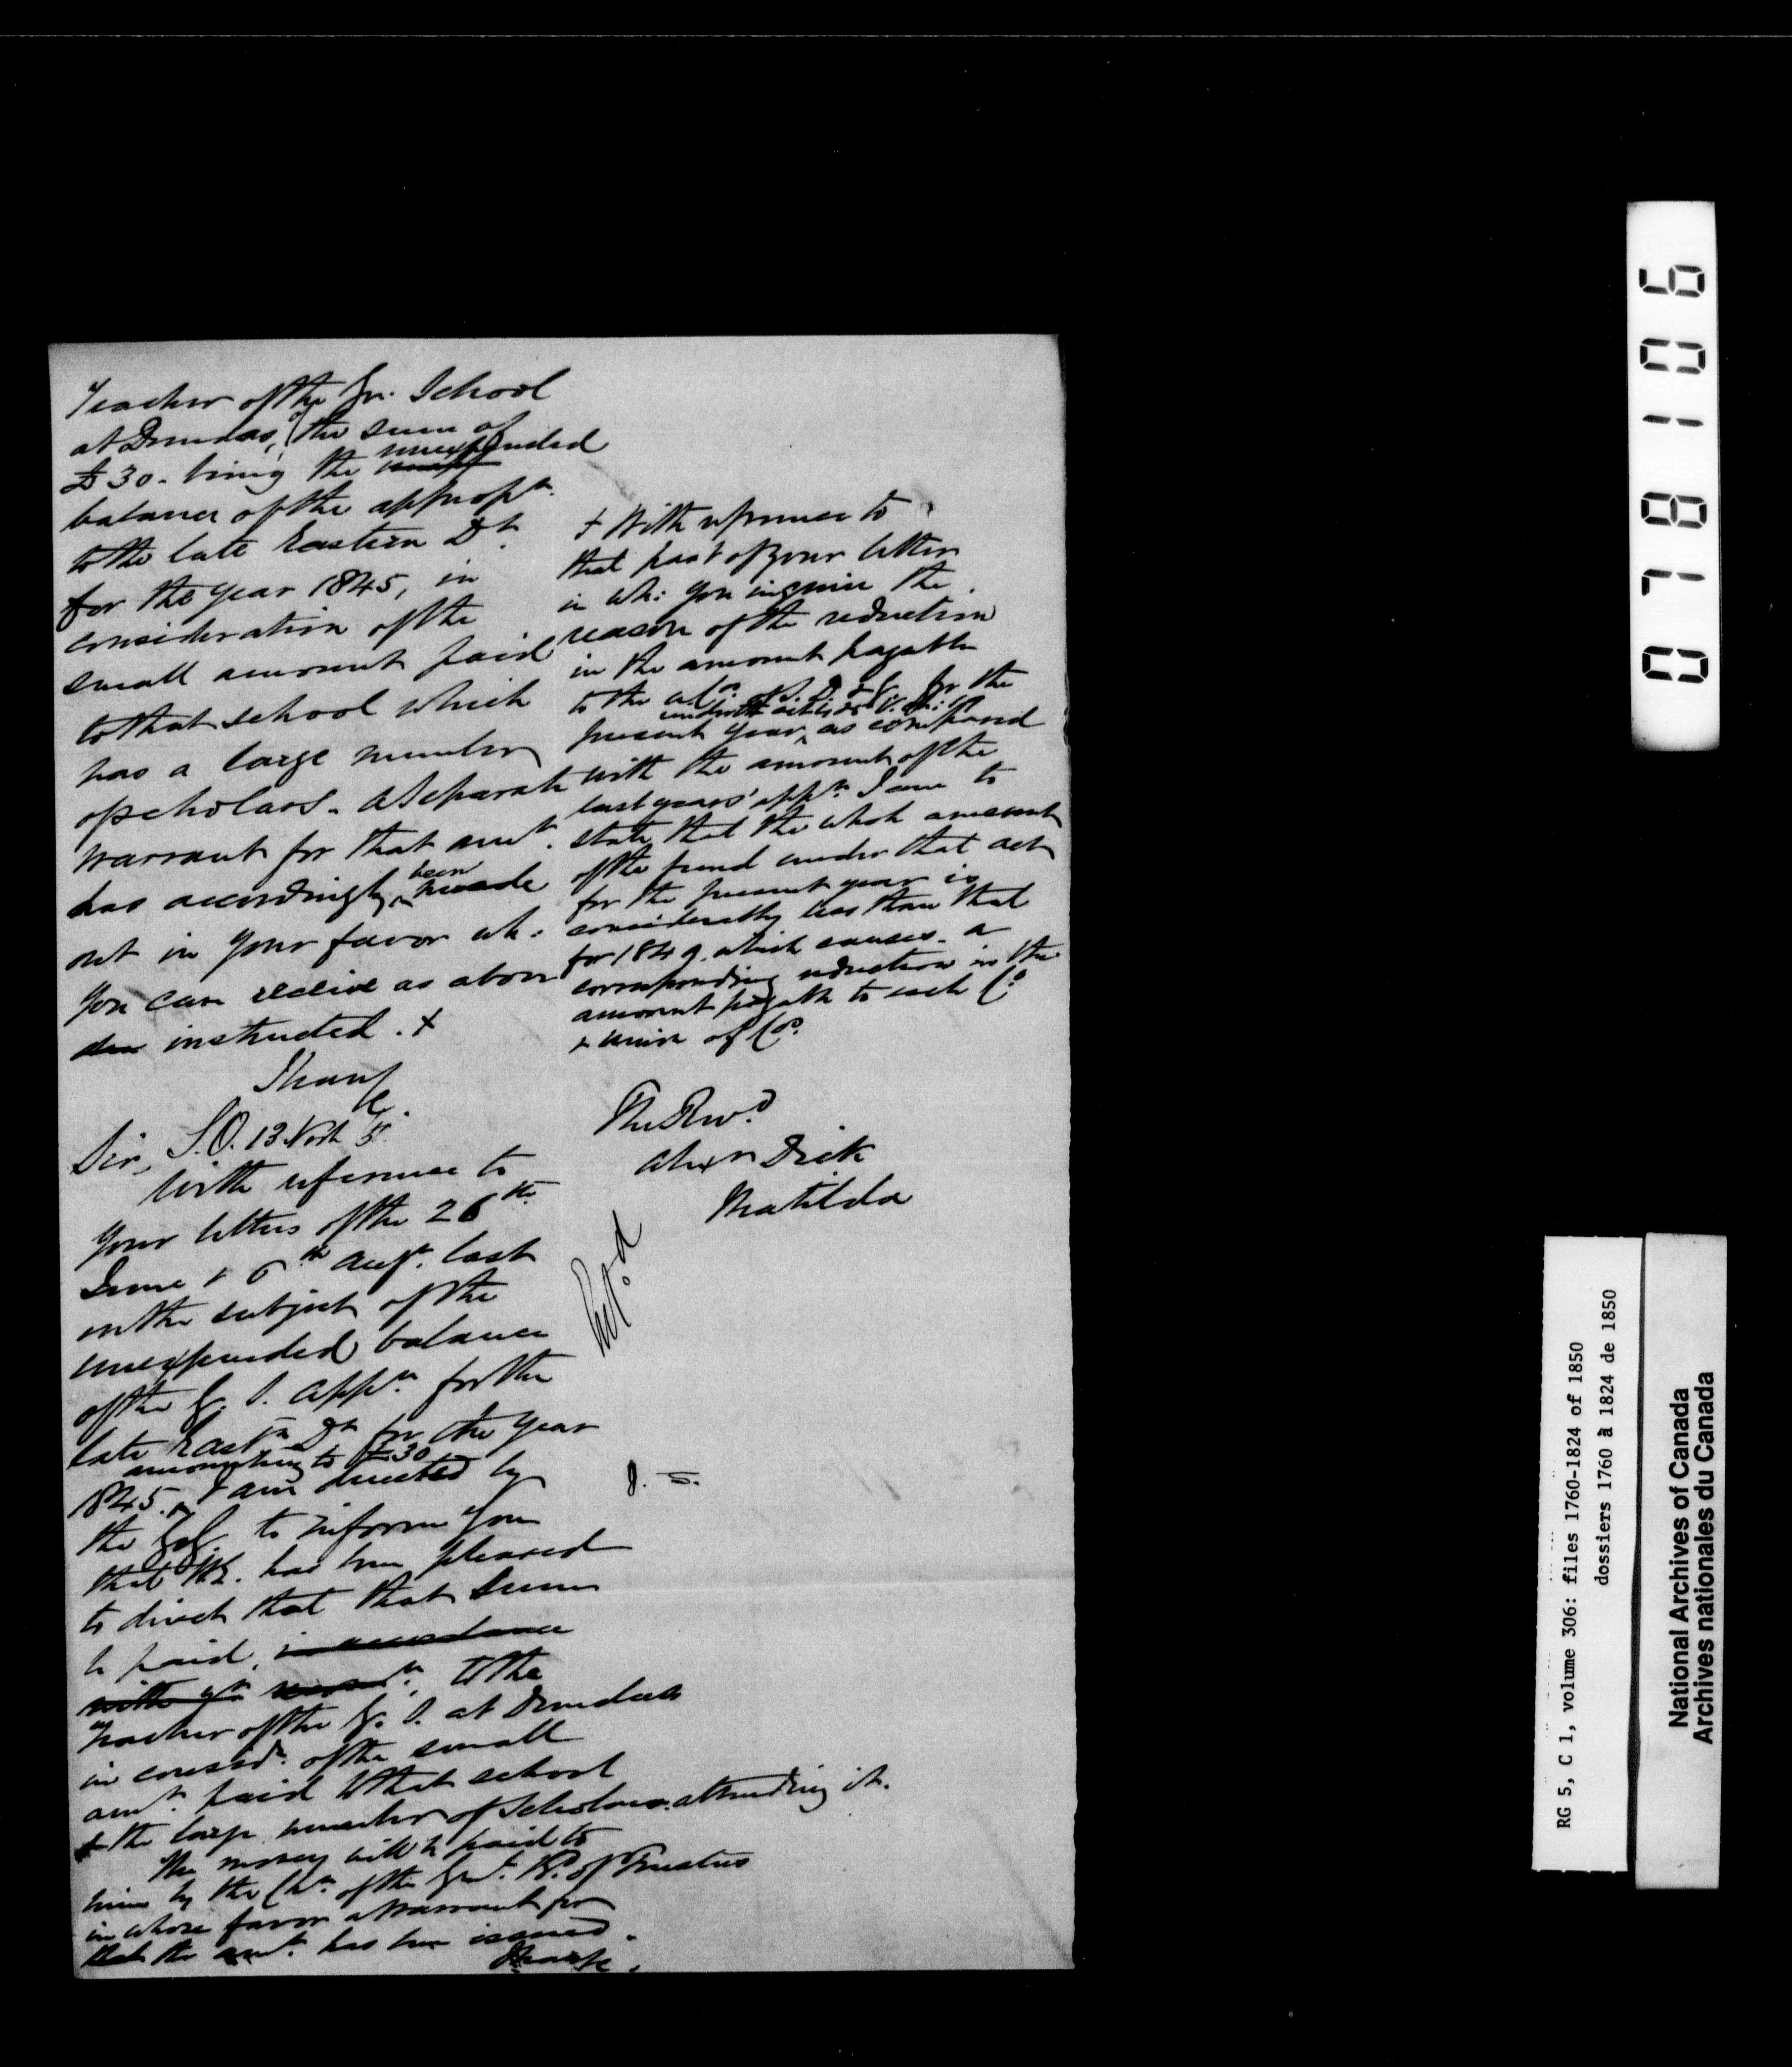 Teacher of the Gr. School
at Dundas, the sum of
£30. being the unexpended
balance of the appropn.
to the late Eastern Dt.
for the year 1845, in
consideration of the
small amount paid
to that school which
has a large number
of scholars. A separate
warrant for that amt.
has accordingly been made
out in your favor wh:
you can receive as above
instructed. +
I have &c
+ With reference to
that part of your letter
in wh: you inquire the
reason of the reduction
in the amount payable
to the of S. D. & G. for the
present year, as compared
with the amount of the
last years' appn. I am to
state that the whole amount
of the fund under that act
for the present year is
considerably less than that
for 1849. which causes a
corresponding reduction in the
amount payable to each Co.
& union of Cos.
S.O. 13 Novr
Sir,
With reference to
your letters of the 26th
June & 6th Augt. last
on the subject of the
unexpended balance
of the G. S. appn. for the
late Eastn Dt for the year
1845. amounting to £30 I am directed by
the GG. to inform you
that HE. has been pleased
to direct that that sum
be paid, in accordance
with yr to the
Teacher of the G. S. at Dundas
in considn. of the small
amt. paid to that school
& the large number of Scholars attending it.
The money will be paid to
him by the Chn. of the Bd. of Trustees
in whose favor a warrant for
that the amt. has been issued.
I have &c.
The Revd.
Alexr Dick
Matilda
J. S.
078106
RG 5, C 1, volume 306: files 1760-1824 of 1850
dossiers 1760 à 1824 de 1850
National Archives of Canada
Archives nationales du Canada